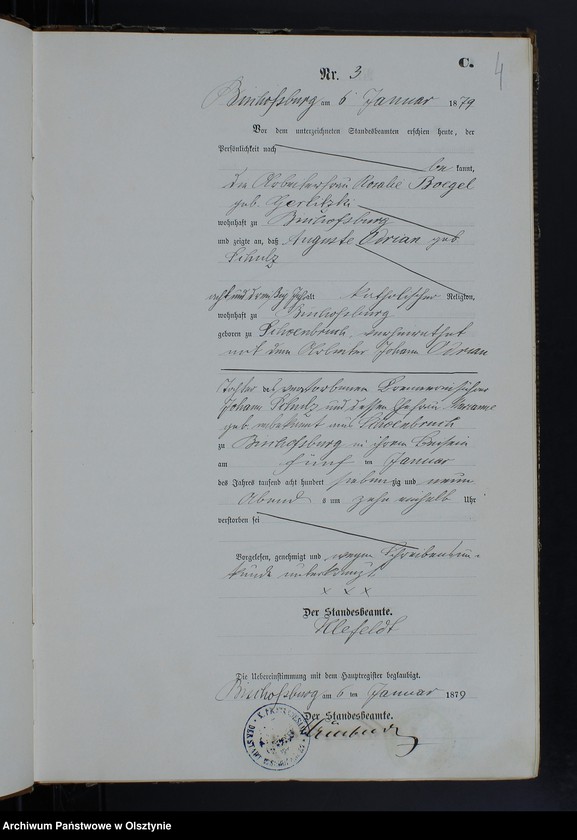 C.
4
Nr. 3
Bischofsburg am 6 Januar 1879
Vor dem unterzeichneten Standesbeamten erschien heute, der
Persönlichkeit nach
be kannt,
die Arbeiterfrau Rosalie Boegel
geb. Gerlitzki
wohnhaft zu Bischofsburg
und zeigte an, daß Auguste Adrian geb
Schulz
acht und dreißig Jahr alt katholischer Religion,
wohnhaft zu Bischofsburg
geboren zu Schoenbruch, verheirathet
mit dem Arbeiter Johann Adrian
Tochter des verstorbenen
Johann Schulz und dessen Ehefrau
geb. unbekannt aus Schoenbruch
zu Bischofsburg in ihrem Beisein
am fünf ten Januar
des Jahres tausend acht hundert sieben zig und neun
Abend s um zehn einhalb Uhr
verstorben sei
Vorgelesen, genehmigt und wegen Schreibensun-
kunde unterkreuzt
x x x
Der Standesbeamte.
Die Uebereinstimmung mit dem Hauptregister beglaubigt.
Bischofsburg am 6 ten Januar 1879
Der Standesbeamte.
Archiwum Państwowe w Olsztynie